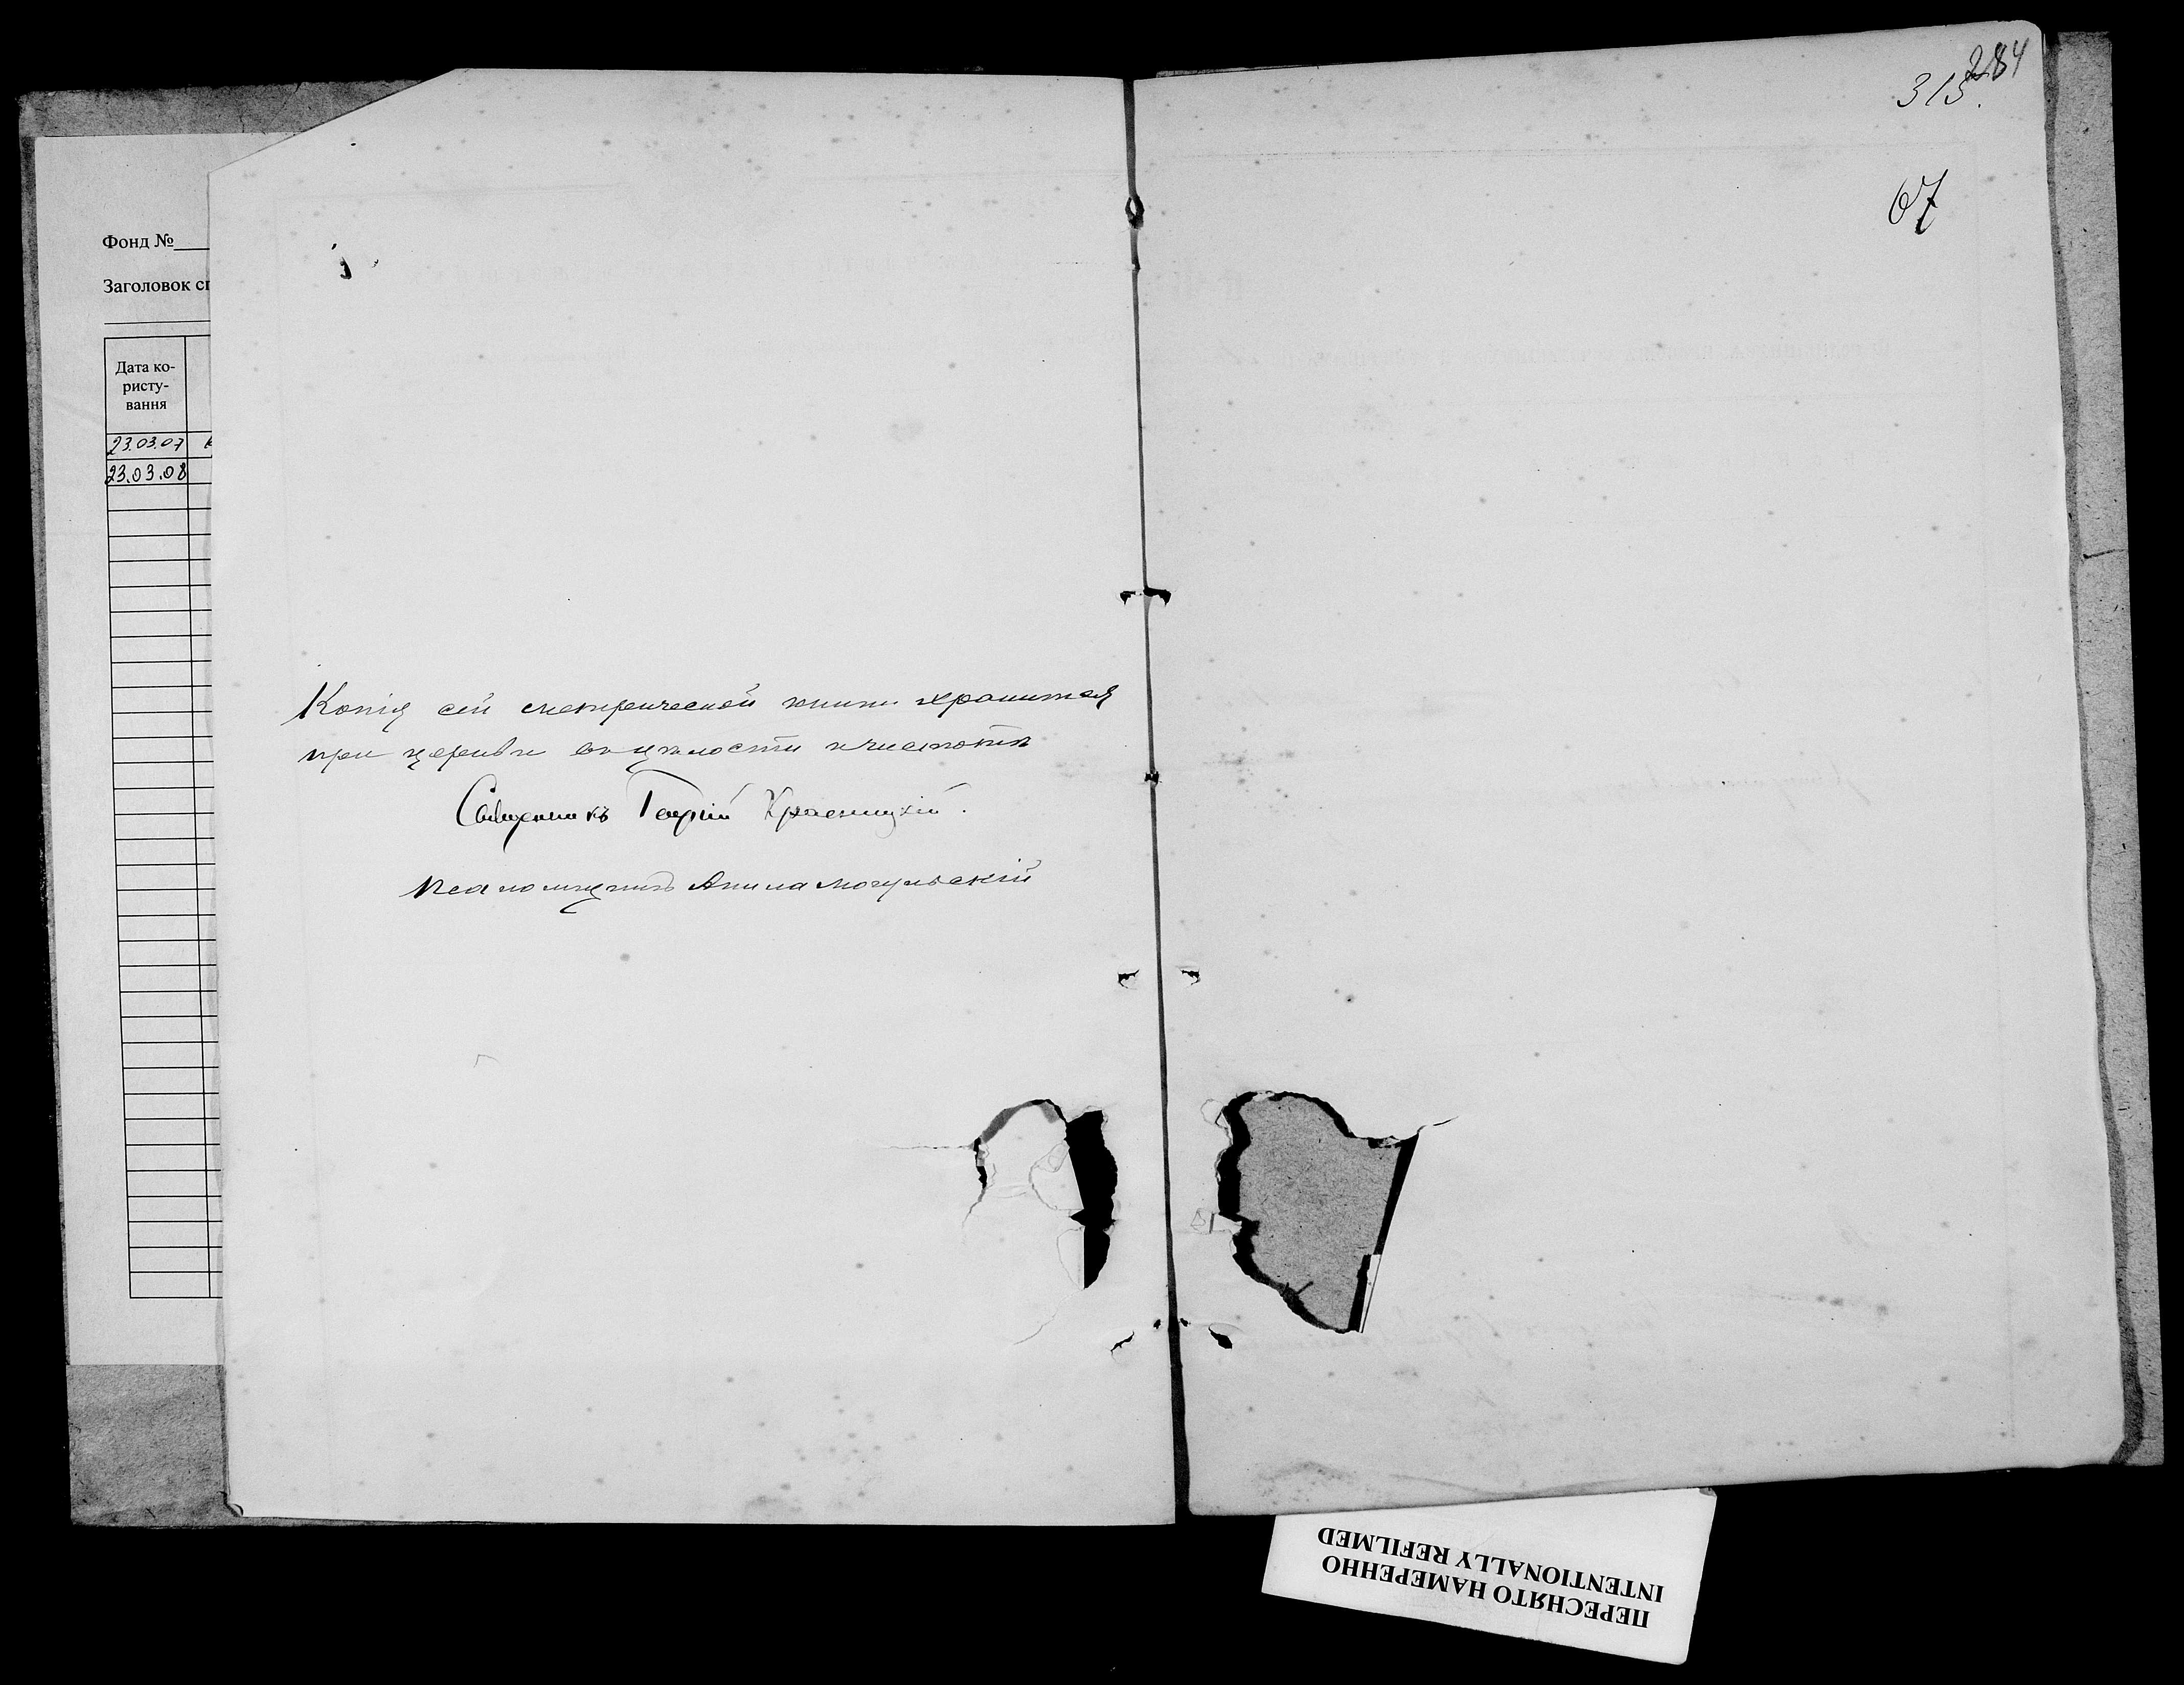 284
313.
67
Фонд №
Заголовок сп
Дата ко-
ристу-
вання
23.03.07
23.03.08
Копія сей метрической книги хранится
при церкви въ цѣлости и чистотѣ
Священникъ Георгій Красницкій.
Псаломщикъ Акила Могульскій
ПЕРЕСНЯТО НАМЕРЕННО
INTENTIONALLY REFILMED